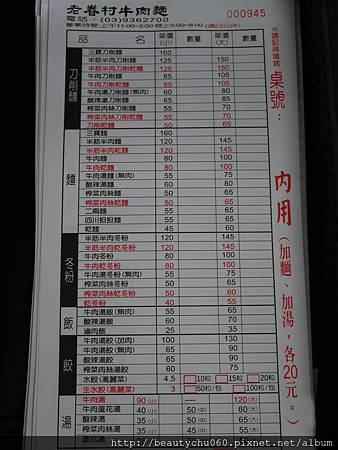 老眷村牛肉麵
電話：(03)9362700
營業時間：上午11:00-2:00 晚上5:00-8:00 (週日公休)
000945
※請記得填寫 桌號：
內用（加麵、加湯，各20元。）
品名 單價(小) 數量 單價(大) 數量
刀削麵
三寶刀削麵 160
半筋半肉刀削麵 125 150
半筋半肉乾刀削麵 125 150
牛肉刀削麵 85 105
牛肉乾刀削麵 85 105
牛肉湯刀削麵(無肉) 60 80
酸辣湯刀削麵 65 85
榨菜肉絲刀削麵 55 70
榨菜肉絲乾刀削麵 55 65
刀削乾麵 50 65
麵
三寶麵 160
半筋半肉麵 120 145
半筋半肉乾麵 120 145
牛肉麵 80 100
牛肉乾麵 80 100
牛肉湯麵(無肉) 55 75
酸辣湯麵 60 80
榨菜肉絲麵 50 65
榨菜肉絲乾麵 50 60
二兩麵 55 65
四川担担麵 55 65
乾麵 45 60
冬粉
半筋半肉冬粉 120 145
半筋半肉乾冬粉 120 145
牛肉冬粉 80 100
牛肉乾冬粉 80 100
牛肉湯冬粉(無肉) 55 75
榨菜肉絲冬粉 50 65
榨菜肉絲乾冬粉 50 60
乾冬粉 40 55
飯
牛肉湯飯(無肉) 55 75
酸辣湯飯 60 80
滷肉飯 25 35
餃
牛肉湯餃(加肉) 100 130
牛肉湯餃(無肉) 65 90
酸辣湯餃 65 90
榨菜肉絲湯餃 60 85
水餃(高麗菜) 4.5 □10粒 □15粒 □20粒
生水餃(高麗菜) 3 □50粒/包 □100粒/包
湯
牛肉湯 90(小) ---- 120(大)
牛肉蛋花湯 40(小) 50(中) 60(大)
酸辣湯 40(小) 50(中) 60(大)
榨菜肉絲湯 35(小) 45(中) 55(大)
蛋花湯
http://beautychu060.pixnet.net/album